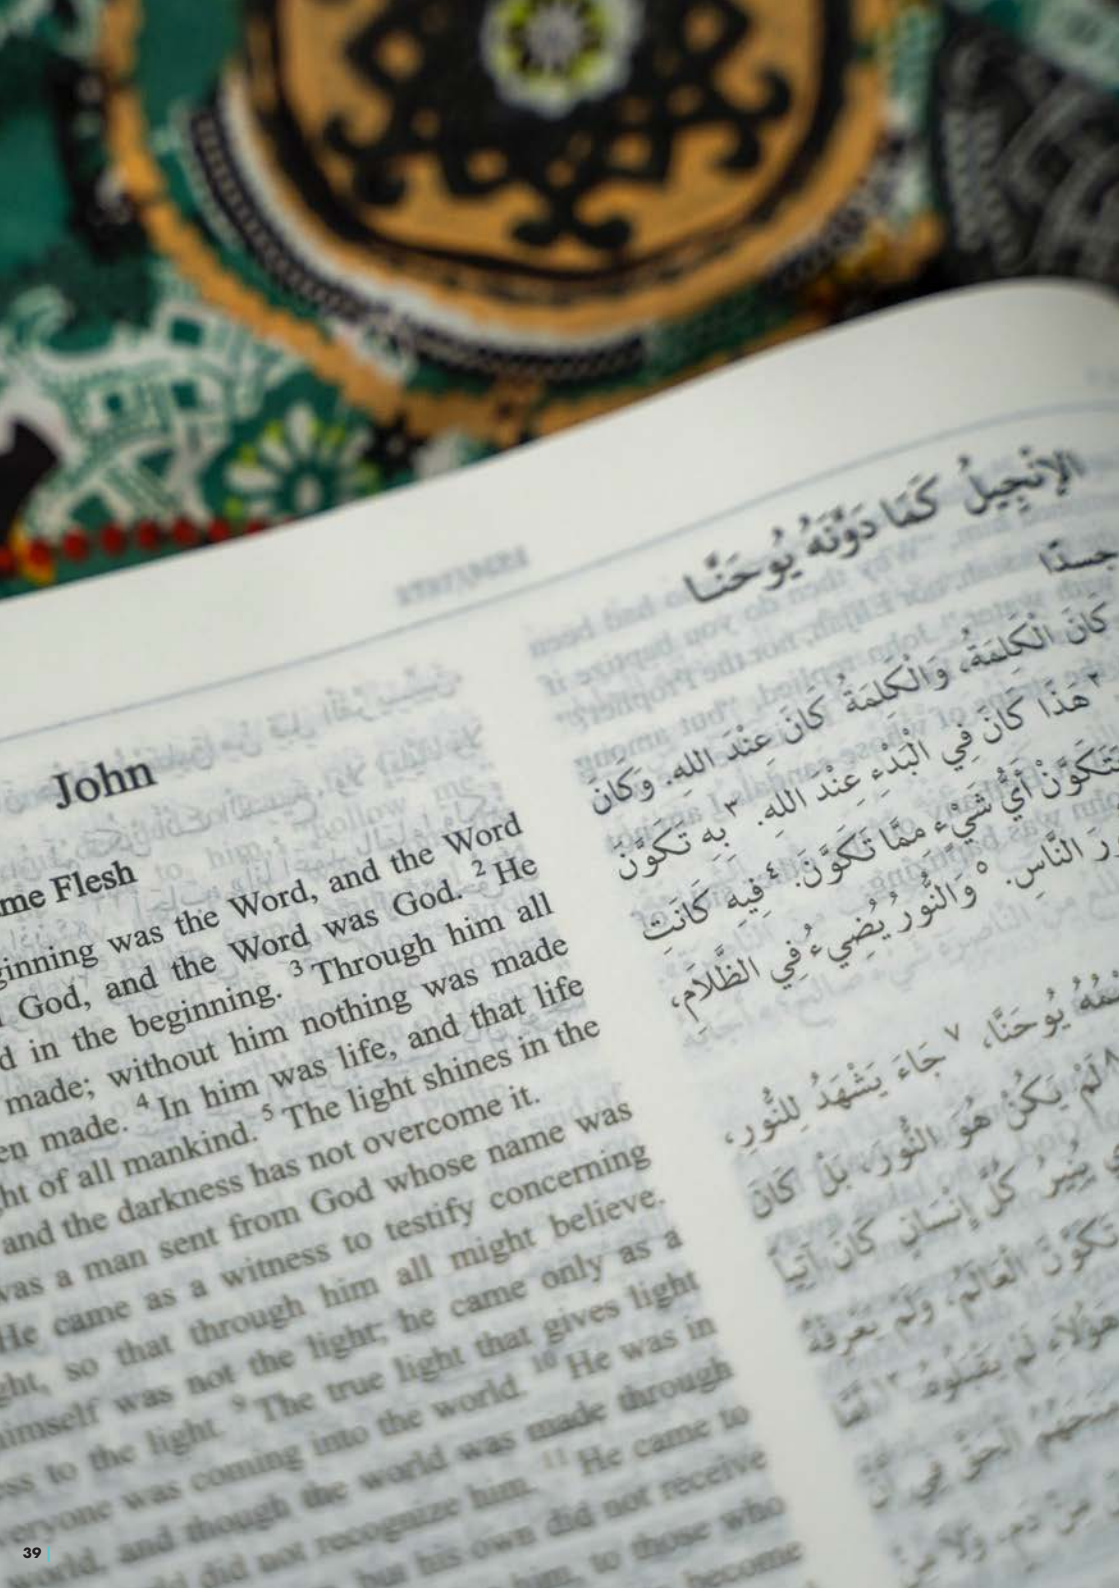 John
me Flesh
ginning was the Word, and the Word
God, and the Word was God. 2 He
d in the beginning. 3 Through him all
made; without him nothing was made
en made. 4 In him was life, and that life
ht of all mankind. 5 The light shines in the
and the darkness has not overcome it.
was a man sent from God whose name was
He came as a witness to testify concerning
ght, so that through him all might believe.
himself was not the light; he came only as a
ess to the light. 9 The true light that gives light
eryone was coming into the world. 10 He was in
world, and though the world was made through
did not recognize him. 11 He came to
but his own did not receive
him, to those who
become
الإنْجِيلُ كَمَا دَوَّنَهُ يُوحَنَّا
جسدًا
كَانَ الْكَلِمَةُ، وَالْكَلِمَةُ كَانَ عِنْدَ اللهِ. وَكَانَ
٢ هَذَا كَانَ فِي الْبَدْءِ عِنْدَ اللهِ. ٣ بِهِ تَكَوَّنَ
يَتَكَوَّنْ أَيُّ شَيْءٍ مِمَّا تَكَوَّنَ. ٤ فِيهِ كَانَتِ
النَّاسِ. ٥ وَالنُّورُ يُضِيءُ فِي الظَّلَامِ،
يُوحَنَّا، ٧ جَاءَ يَشْهَدُ لِلنُّورِ،
٨ لَمْ يَكُنْ هُوَ النُّورَ، بَلْ كَانَ
يُنِيرُ كُلَّ إِنْسَانٍ كَانَ آتِياً
تَكَوَّنَ الْعَالَمُ، وَلَمْ يَعْرِفْهُ
هَؤُلَاءِ لَمْ يَقْبَلُوهُ. أَمَّا
الْحَقَّ فِي أَنْ
مِنْ دَمٍ، وَلَا مِنْ
39